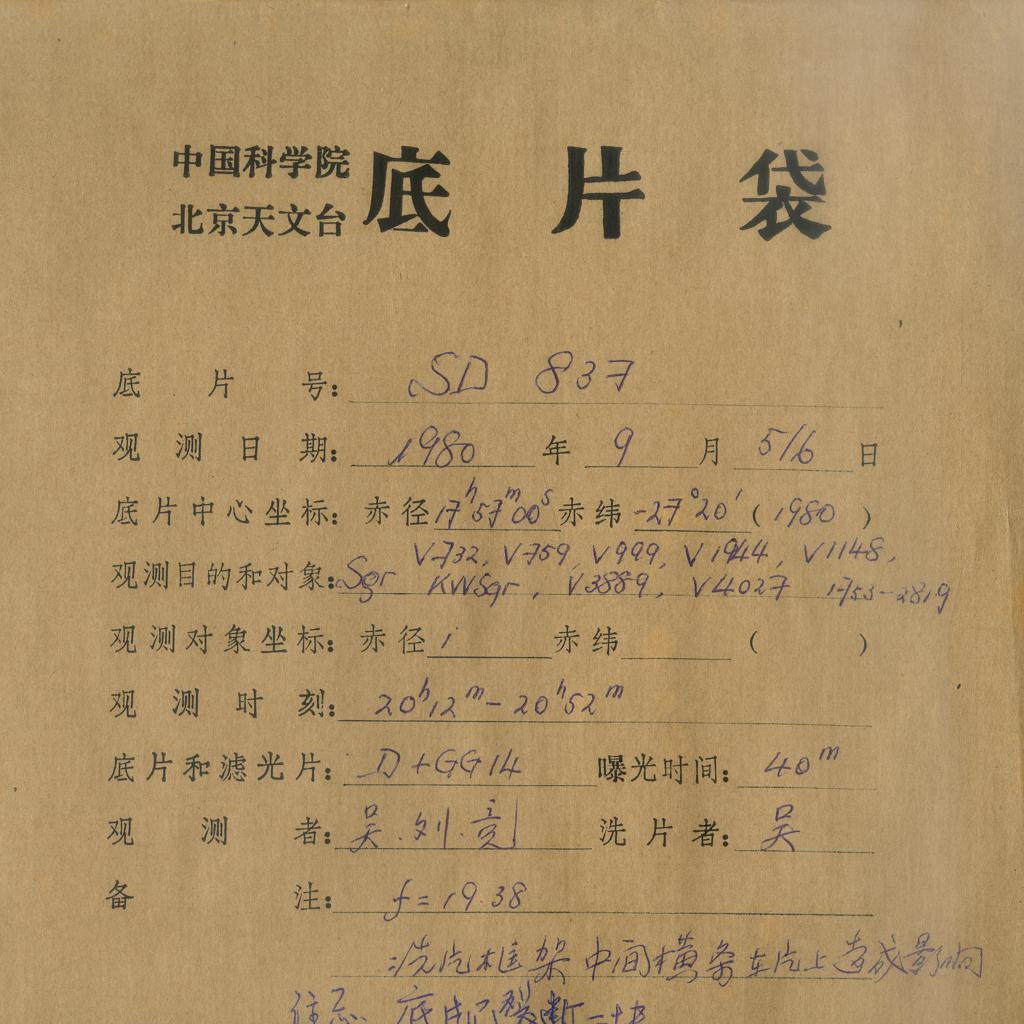 中国科学院
北京天文台
底片袋
底片号: SD 837
观测日期: 1980 年 9 月 5/6 日
底片中心坐标: 赤径 17h 57m 00s 赤纬 -27° 20′ ( 1980 )
V732, V759, V999, V1944, V1148,
观测目的和对象: Sgr KWSgr, V3889, V4027 1753-2819
观测对象坐标: 赤径 赤纬 ( )
观测时刻: 20h 12m - 20h 52m
底片和滤光片: D+GG14 曝光时间: 40m
观测者: 吴.刘. 洗片者: 吴
备注: f=19.38
洗片框架中间横条在片上造成影响
注意 底片已裂断一块